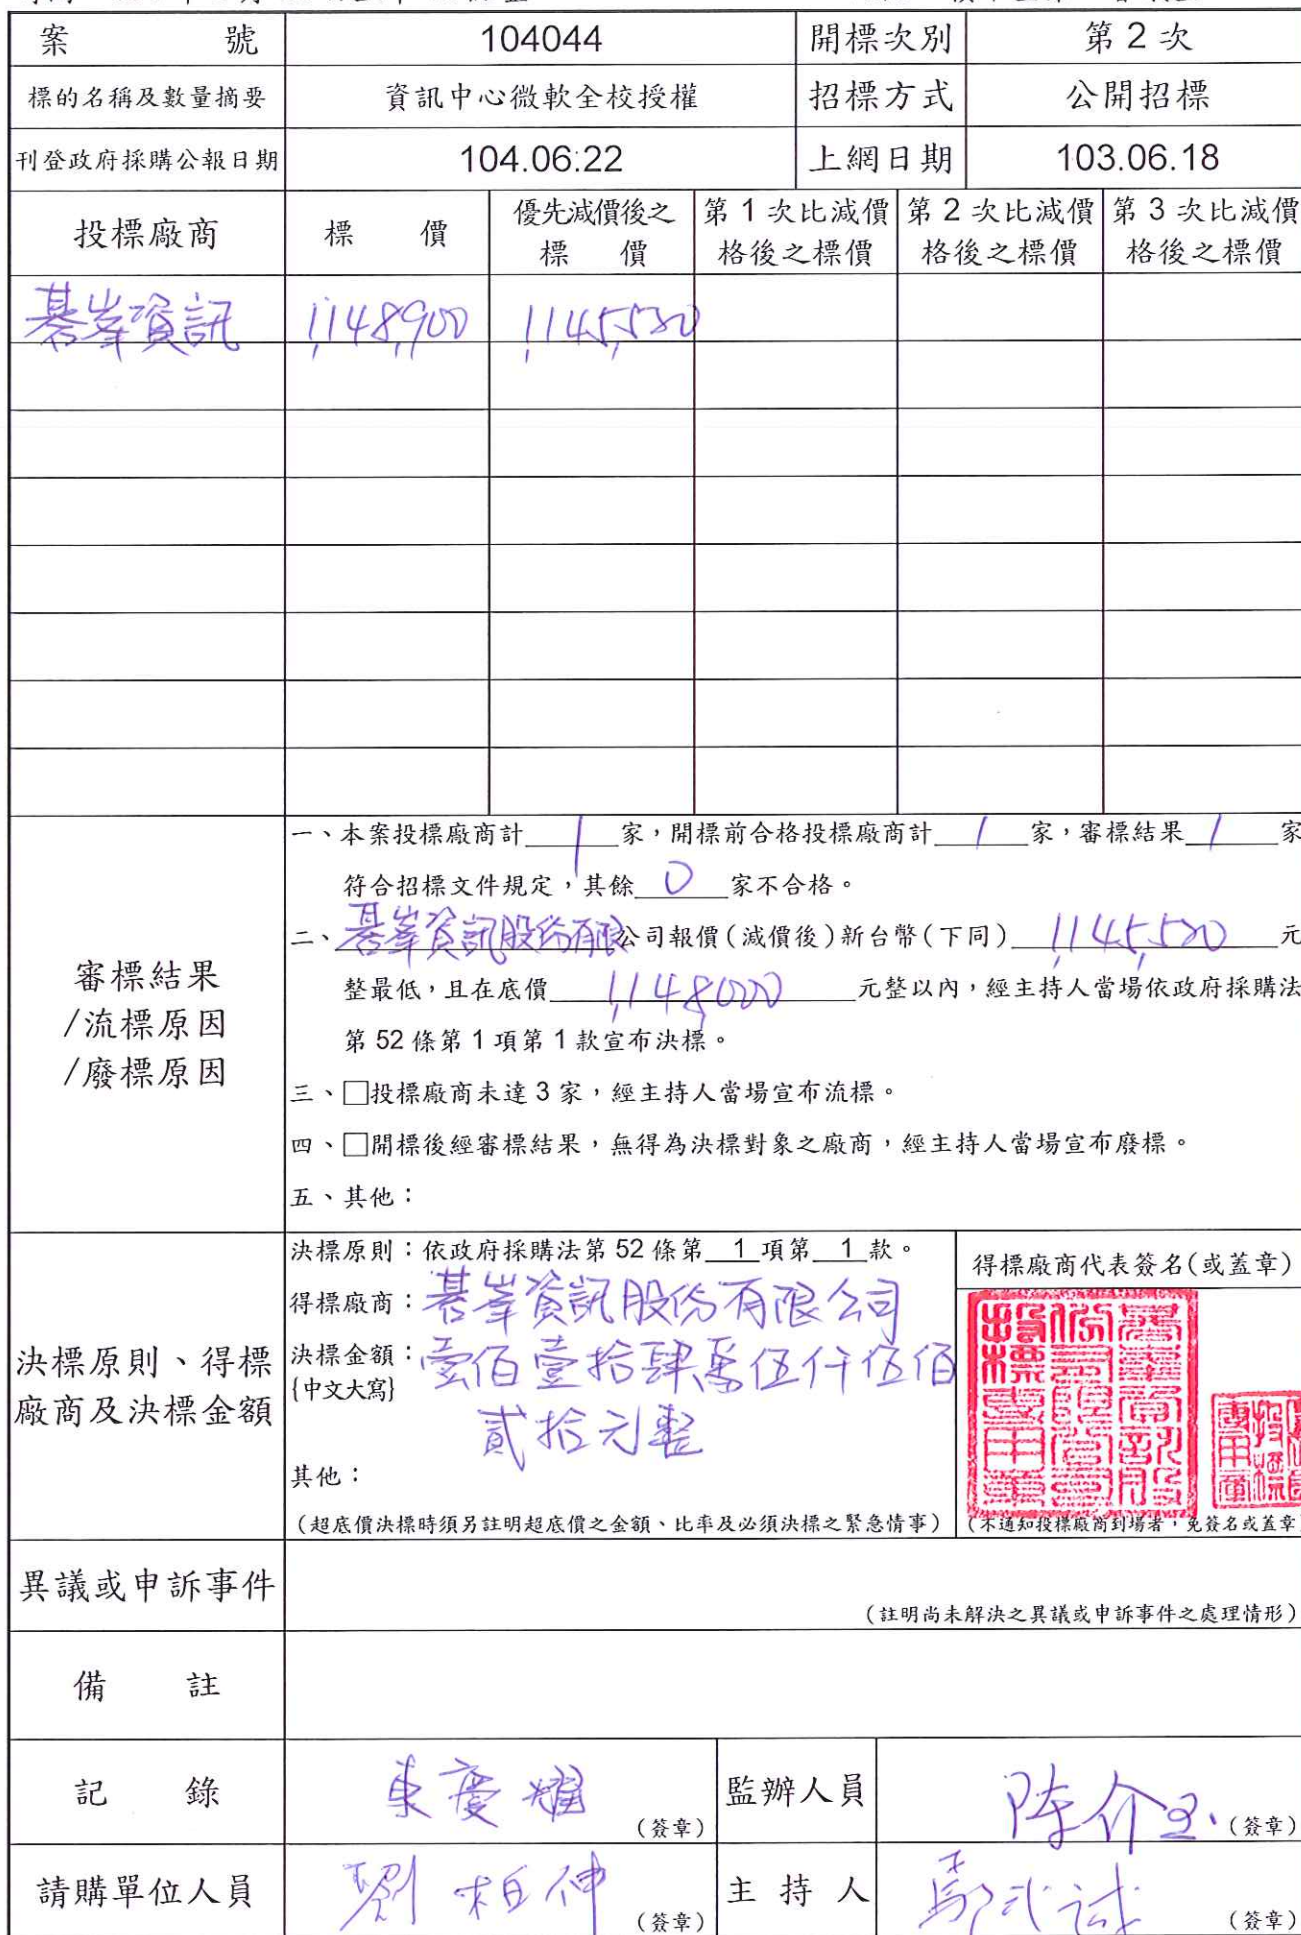 案 號 104044 開標次別 第 2 次
標的名稱及數量摘要 資訊中心微軟全校授權 招標方式 公開招標
刊登政府採購公報日期 104.06.22 上網日期 103.06.18
投標廠商 標 價 優先減價後之標 價 第 1 次比減價格後之標價 第 2 次比減價格後之標價 第 3 次比減價格後之標價
碁峯資訊 1,148,900 1,145,520
審標結果
/流標原因
/廢標原因
一、本案投標廠商計 1 家，開標前合格投標廠商計 1 家，審標結果 1 家
符合招標文件規定，其餘 0 家不合格。
二、碁峯資訊股份有限公司報價(減價後)新台幣(下同) 1,145,520 元
整最低，且在底價 1,148,000 元整以內，經主持人當場依政府採購法
第 52 條第 1 項第 1 款宣布決標。
三、□投標廠商未達 3 家，經主持人當場宣布流標。
四、□開標後經審標結果，無得為決標對象之廠商，經主持人當場宣布廢標。
五、其他：
決標原則、得標
廠商及決標金額
決標原則：依政府採購法第 52 條第 1 項第 1 款。
得標廠商：碁峯資訊股份有限公司
決標金額：壹佰壹拾肆萬伍仟伍佰
{中文大寫}
貳拾元整
其他：
(超底價決標時須另註明超底價之金額、比率及必須決標之緊急情事)
得標廠商代表簽名(或蓋章)
(不通知投標廠商到場者，免簽名或蓋章
異議或申訴事件
(註明尚未解決之異議或申訴事件之處理情形)
備 註
記 錄 (簽章) 監辦人員 (簽章)
請購單位人員 劉柏伸 (簽章) 主 持 人 (簽章)